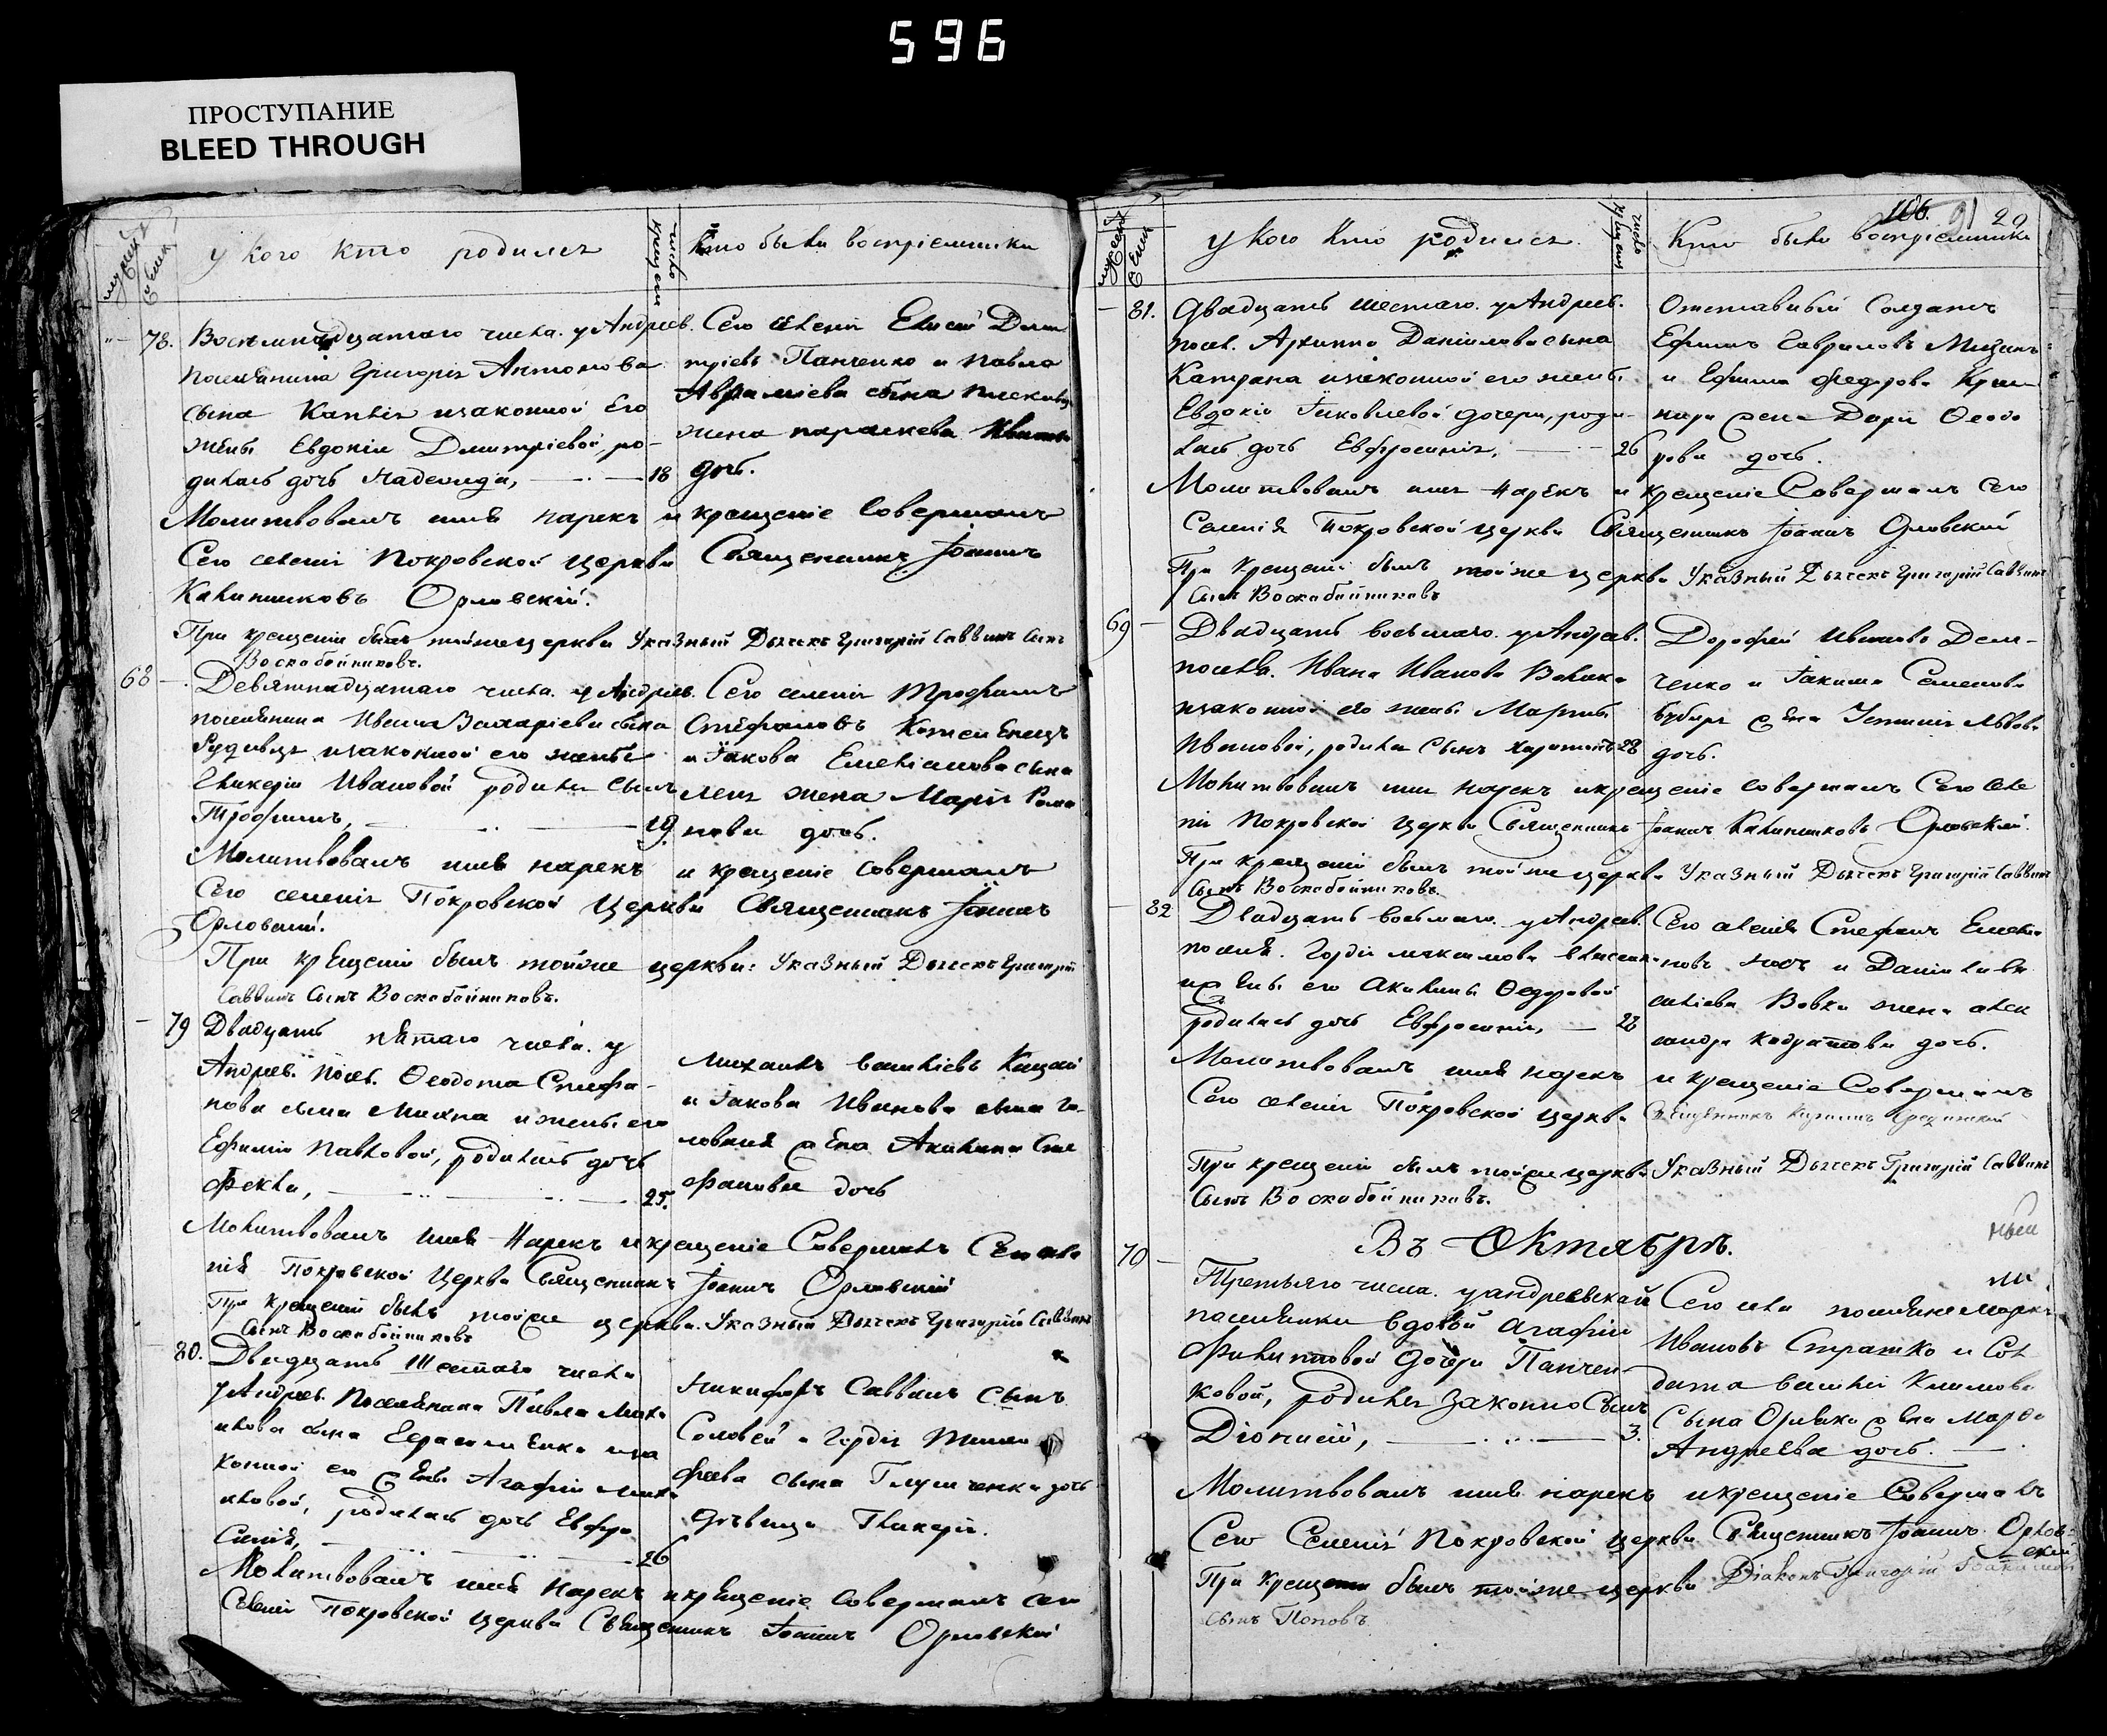 596
ПРОСТУПАНИЕ
BLEED THROUGH
мужеск женск
у кого кто родился
число крещенія
Кто были воспріемники
78. Восемнадцатаго числа. у Андреев.
поселянина Григорія Антонова
сына Каплія изаконной Его
жены Евдокіи Дмитріевой, ро-
дилась дочь Надежда, 18
Сего селенія Елисей Дми
тріевъ Панченко и Павла
Аврамиева сына
жена параскева Иванова
дочь.
Молитвовалъ имя нарекъ и крещеніе Совершалъ
Сего селенія Покровской Церкви Священникъ Іоаннъ
Калинниковъ Орловскій.
При крещеніи былъ тойже церкви Указный Дьячекъ Григорій Саввинъ Сынъ
Воскобойниковъ.
68 Девятнадцатаго числа. у Андреев.
поселянина Ивана Захаріева сына
изаконной его жены
Гликеріи Ивановой родился Сынъ
Трофимъ, 19.
Сего селенія Трофимъ
Стефановъ
и Іакова Емеліанова сына
жена Марія Рома
нова дочь.
Молитвовалъ имя нарекъ и крещеніе Совершалъ
Сего селенія Покровской Церкви Священникъ Іоаннъ
Орловскій.
При крещеніи былъ тойже церкви: Указный Дьячекъ Григорій
Саввинъ Сынъ Воскобойниковъ.
79 Двадцать пятаго числа. у
Андреев. посел. Феодота Стефа-
нова сына Михна и жены его
Ефиміи Павловой, родилась дочь
Фекла, 25.
Михаилъ Василіевъ
и Іакова Иванова сына Го-
жена Акилина Сте
фанова дочь
Молитвовалъ имя Нарекъ и крещеніе Совершалъ Сего селе
нія Покровской Церкви Священникъ Іоаннъ Орловскій
При крещеніи былъ тойже церкви. Указный Дьячекъ Григорій Саввинъ
Сынъ Воскобойниковъ
80. Двадцать Шестаго числа
у Андреев. Поселянина Павла Миха
илова сына Герасименка иза
конной его жены Агафіи Миха
иловой, родилась дочь Евфро
синія, 26
Никифоръ Саввинъ Сынъ
Соловей и Гордія Тимо
феева сына Глущенка дочь
дѣвица Гликерія.
Молитвовалъ имя Нарекъ и крещеніе Совершалъ сего
Селенія Покровской Церкви Священникъ Іоаннъ Орловскій
106. 91 29
мужеск женск
у кого кто родился.
число крещенія
Кто были воспріемники
81. Двадцать шестаго. у Андреев.
посел. Архиппа Даніилова сына
Катрана изаконной его жены.
Евдокіи Іаковлевой дочери, роди-
лась дочь Евфросинія, 26
Отставный Солдатъ
Ефимъ Гавриловъ
и Ефима Федорова
жена Дарія Феодо
рова дочь.
Молитвовалъ имя Нарекъ и крещеніе Совершалъ Сего
Селенія Покровской Церкви Священникъ Іоаннъ Орловскій
При Крещеніи былъ тойже церкви Указный Дьячекъ Григорій Саввинъ
Сынъ Воскобойниковъ
69 Двадцать восьмаго. у Андреев.
поселя. Ивана Иванова
изаконной его жены. Марѳы
Ивановой, родился Сынъ Харитонъ 28
Дорофей Иванов Дем-
ченко и Іакима Семенова
жена Львова
дочь.
Молитвовалъ имя Нарекъ и крещеніе совершалъ Сего Селе
нія Покровской Церкви Священникъ Іоаннъ Калинниковъ Орловскій.
При крещеніи былъ тойже церкви Указный Дьячекъ Григорій Саввинъ
Сынъ Воскобойниковъ.
82 Двадцать восьмаго. у Андреев.
поселя. Гордія Максимова
и жены его Акилины Федоровой
родилась дочь Евфросинія, 28
Сего селенія Стефанъ Емелія
новъ и Даніила Ва
силіева Вовка жена Алек
сандра Кодратова дочь.
Молитвовалъ имя нарекъ и крещеніе Совершалъ
Сего селенія Покровской Церкви Священникъ
При крещеніи былъ тойже церкви Указный Дьячекъ Григорій Саввинъ
Сынъ Воскобойниковъ.
Въ Октябрѣ.
70 Третьяго числа. у андреевской
поселянки вдовы Агафіи
Филипповой дочери Панчен-
ковой, родился законно Сынъ
Діонисій, 3.
Сего села поселяне Маркъ
Ивановъ Стратко и Сол
дата Василія Климова
Сына жена Марѳа
Андреева дочь.
Молитвовалъ имя нарекъ и крещеніе Совершалъ
Сего Селенія Покровской Церкви Священникъ Іоаннъ Орлов-
скій
При крещеніи былъ тойже церкви Діаконъ Григорій
сынъ Поповъ